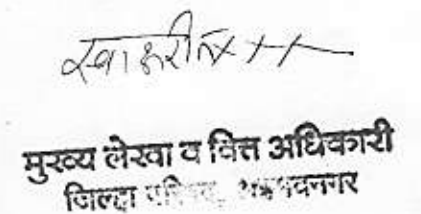 स्वाक्षरीत x x
मुख्य लेखा व वित्त अधिकारी
जिल्हा परिषद, अहमदनगर